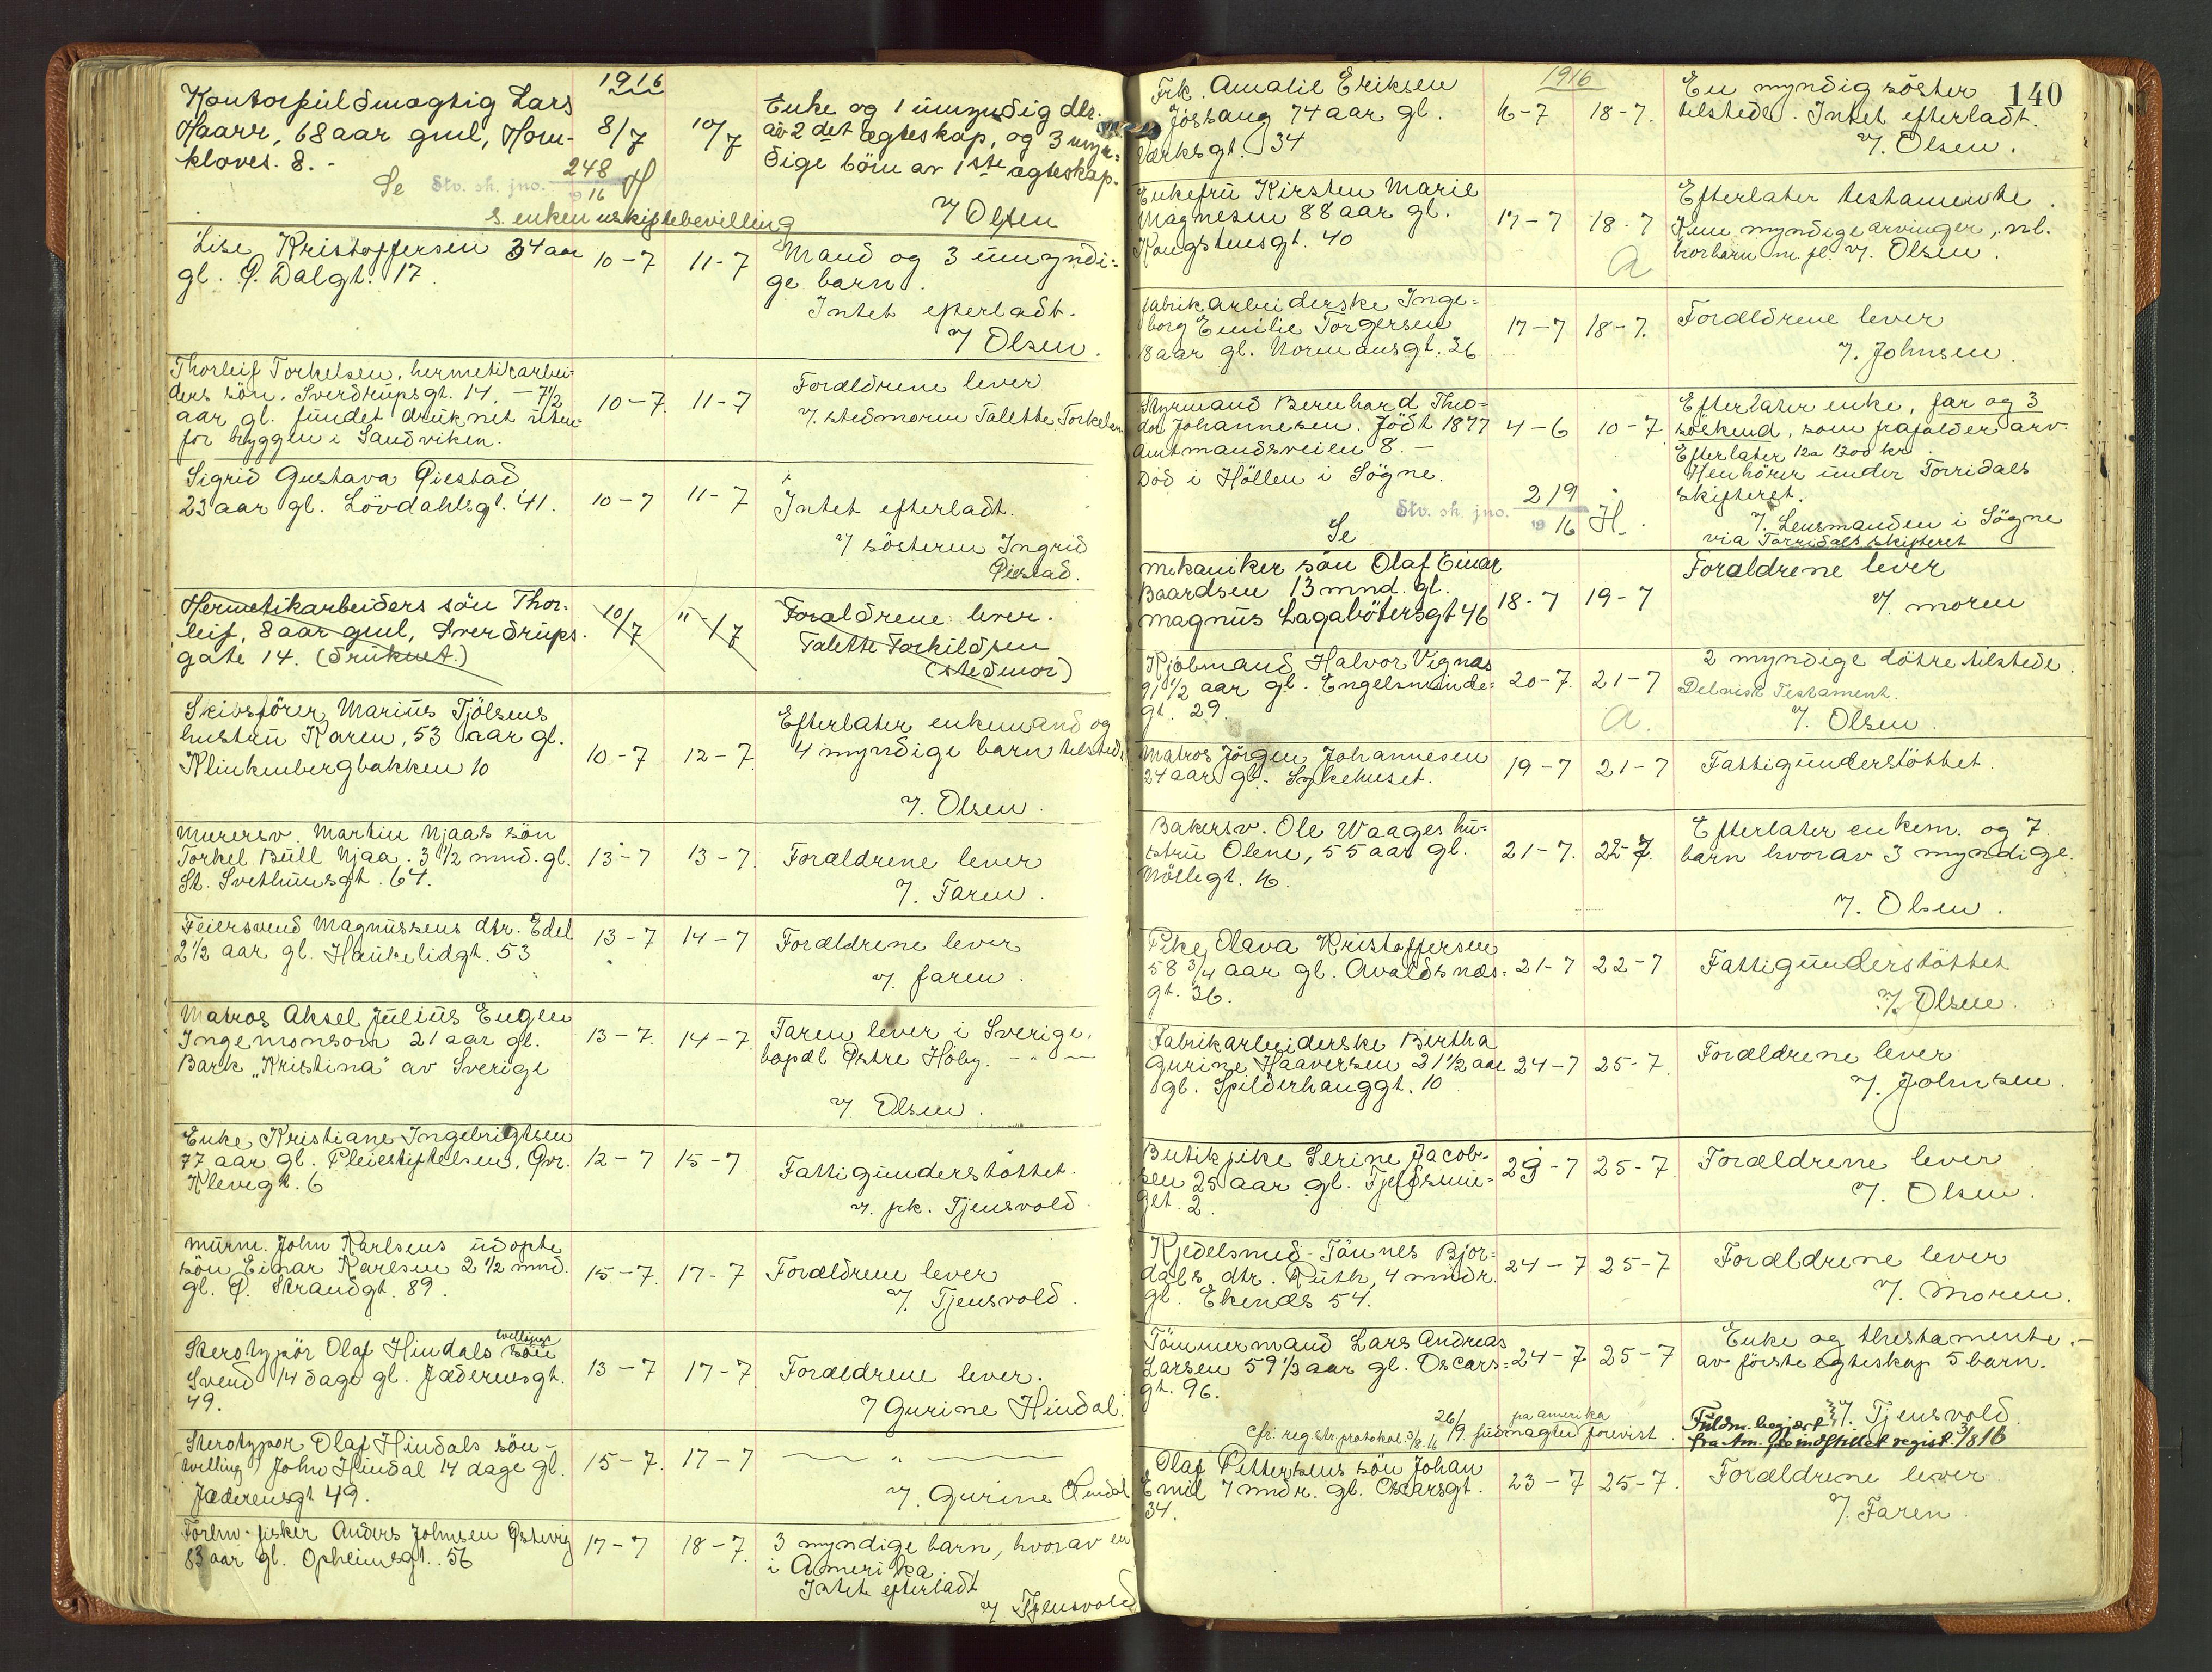 1916
Kontorfuldmægtig Lars
Haarr, 68 aar gml, Horn-
kloves. 8. -
8/7
10/7
Enke og 1 umyndig dtr.
av 2det ægteskap, og 3 myn-
dige börn av 1ste ægteskap.
Se Stv. sk. jno. 248/1916 H
s. enken uskiftebevilling
v/ Olsen
Lise Kristoffersen 34 aar
gl. Ø. Dalgt. 17.
10-7
11-7
Mand og 3 umyndi-
ge barn.
Intet efterladt.
v/ Olsen.
Thorleif Torkelsen, hermetikarbei-
ders sön. Sverdrupsgt. 14. - 7 1/2
aar gl. fundet druknet uten-
for bryggen i Sandviken.
10-7.
11-7
Forældrene lever
v. stedmoren Talette Torkelsen
Sigrid Gustava Qiestad
23 aar gl. Lövdahlsgt. 41.
10-7
11-7
Intet efterladt.
v/ sösteren Ingrid
Qiestad.
Hermetikarbeiders sön Thor-
leif, 8 aar gml, Sverdrups-
gate 14. (druknet.)
10/7
11/7
Forældrene lever.
Talette Torkildsen
(stedmor)
Skibsförer Marius Tjölsens
hustru Karen, 53 aar gl.
Klinkenbergbakken 10
10-7
12-7.
Efterlater enkemand og
4 myndige barn tilstede
v. Olsen.
Murersv. Martin Njaas sön
Torkel Bull Njaa. 3 1/2 mnd. gl.
St. Svithunsgt. 64.
13-7
13-7.
Forældrene lever
v. Faren.
Feiersvend Magnussens dtr. Edel
2 1/2 aar gl. Haukelidgt. 53
13-7
14-7
Forældrene lever
v. faren.
Matros Aksel Julius Eugen
Ingemonson 21 aar gl.
Bark "Kristina" av Sverige
13-7.
14-7.
Faren lever i Sverige.
bopæl Östre Höby. - " -
v. Olsen.
Enke Kristiane Ingebrigtsen
77 aar gl. Pleiestiftelsen, Övr.
Klevegt. 6
12-7
15-7
Fattigunderstöttet.
v. frk. Tjensvold.
Murm. John Karlsens adopt
sön Einar Karlsen 2 1/2 mnd.
gl. Ø. Strandgt. 89.
15-7.
17-7
Forældrene lever
v. Tjensvold.
Sterotypör Olaf Hindals tvilling sön
Svend 14 dage gl. Jæderensgt.
49.
13-7
17-7
Forældrene lever.
v/ Gurine Hindal.
Sterotypör Olaf Hindals sön -
tvilling) John Hindal 14 dage gl.
Jæderensgt 49.
15-7.
17-7
- " -
v. Gurine Hindal
Forhv. fisker Anders Johnsen Östevig
83 aar gl. Opheimsgt. 56
17-7
18-7.
3 myndige barn, hvorav en
i Amerika.
Intet efterladt
v/ Tjensvold
140
1916
Frk. Amalie Eriksen
Jössang 74 aar gl.
Værksgt. 34
16-7
18-7.
En myndig söster
tilstede. Intet efterladt.
v. Olsen.
Enkefru Kirsten Marie
Magnesen 88 aar gl.
Kongstensgt. 40
17-7
18-7
a
Efterlater testamente.
Kun myndige arvinger, nl.
brorbarn m. fl. v. Olsen.
Fabrikarbeiderske Inge-
borg Emilie Torgersen
18 aar gl. Normansgt. 36
17-7
18-7.
Forældrene lever
v. Johnsen.
Styrmand Bernhard Theo-
dor Johannesen. Född 1877
Amtmandsveien 8. -
Död i Höllen i Sögne.
4-6
10-7
Se Stv. sk. jno. 219/1916 H.
Efterlater enke, far og 3
söskend, som frafalder arv.
Efterlater 12 a 1300 kr.
Henhörer under Torridals
skifteret.
v. Lensmanden i Sögne
via Torridals skifteret
Mekaniker sön Olaf Einar
Baardsen 13 mnd. gl.
Magnus Lagabötersgt 46
18-7
19-7
Forældrene lever
v. moren
Kjölmand Halvor Vignæs
91 1/2 aar gl. Engelsminde-
gt. 29.
20-7.
21-7
a.
2 myndige dötre tilstede.
Delvisk Testament.
v. Olsen.
Matros Jörgen Johannesen
24 aar gl. Sykehuset.
19-7
21-7
Fattigunderstöttet.
Bakersv. Ole Waages hu-
stru Olene, 55 aar gl.
Möllegt. 16.
21-7.
22-7.
Efterlater enkem. og 7
barn hvorav 3 myndige.
v. Olsen.
Pike Olava Kristoffersen
58 3/4 aar gl. Avaldsnæs-
gt. 36.
21-7
22-7
Fattigunderstöttet
v. Olsen.
Fabrikarbeiderske Bertha
Gurine Haaversen 21 1/2 aar
gl. Spilderhauggt. 10
24-7
25-7.
Forældrene lever
v. Johnsen.
Butikpike Serine Jacob-
sen 25 aar gl. Fjeldsmu-
get. 2.
23-7
25-7.
Forældrene lever
v. Olsen.
Kjedelsmed Tönnes Bjor-
dals dtr. Ruth, 4 mndr.
gl. Ekenæs 54.
24-7
25-7
Forældrene lever
v. Moren.
Tömmermand Lars Andreas
Larsen 59 1/2 aar gl. Oscars-
gt. 96.
24-7
25-7
Enke og thestamente.-
av förste egteskap 5 barn.
v. Tjensvold.
fra Amerika
cfr. registr.protokol 3/8.16 26/9. fuldmagten forevist.
Fuldm. begjært
fra Am. fremdstillet regist. 3/8 16
Olaf Pettersens sön Johan
Emil 7 mndr. gl. Oscarsgt.
34.
23-7
25-7.
Forældrene lever
v. Faren.